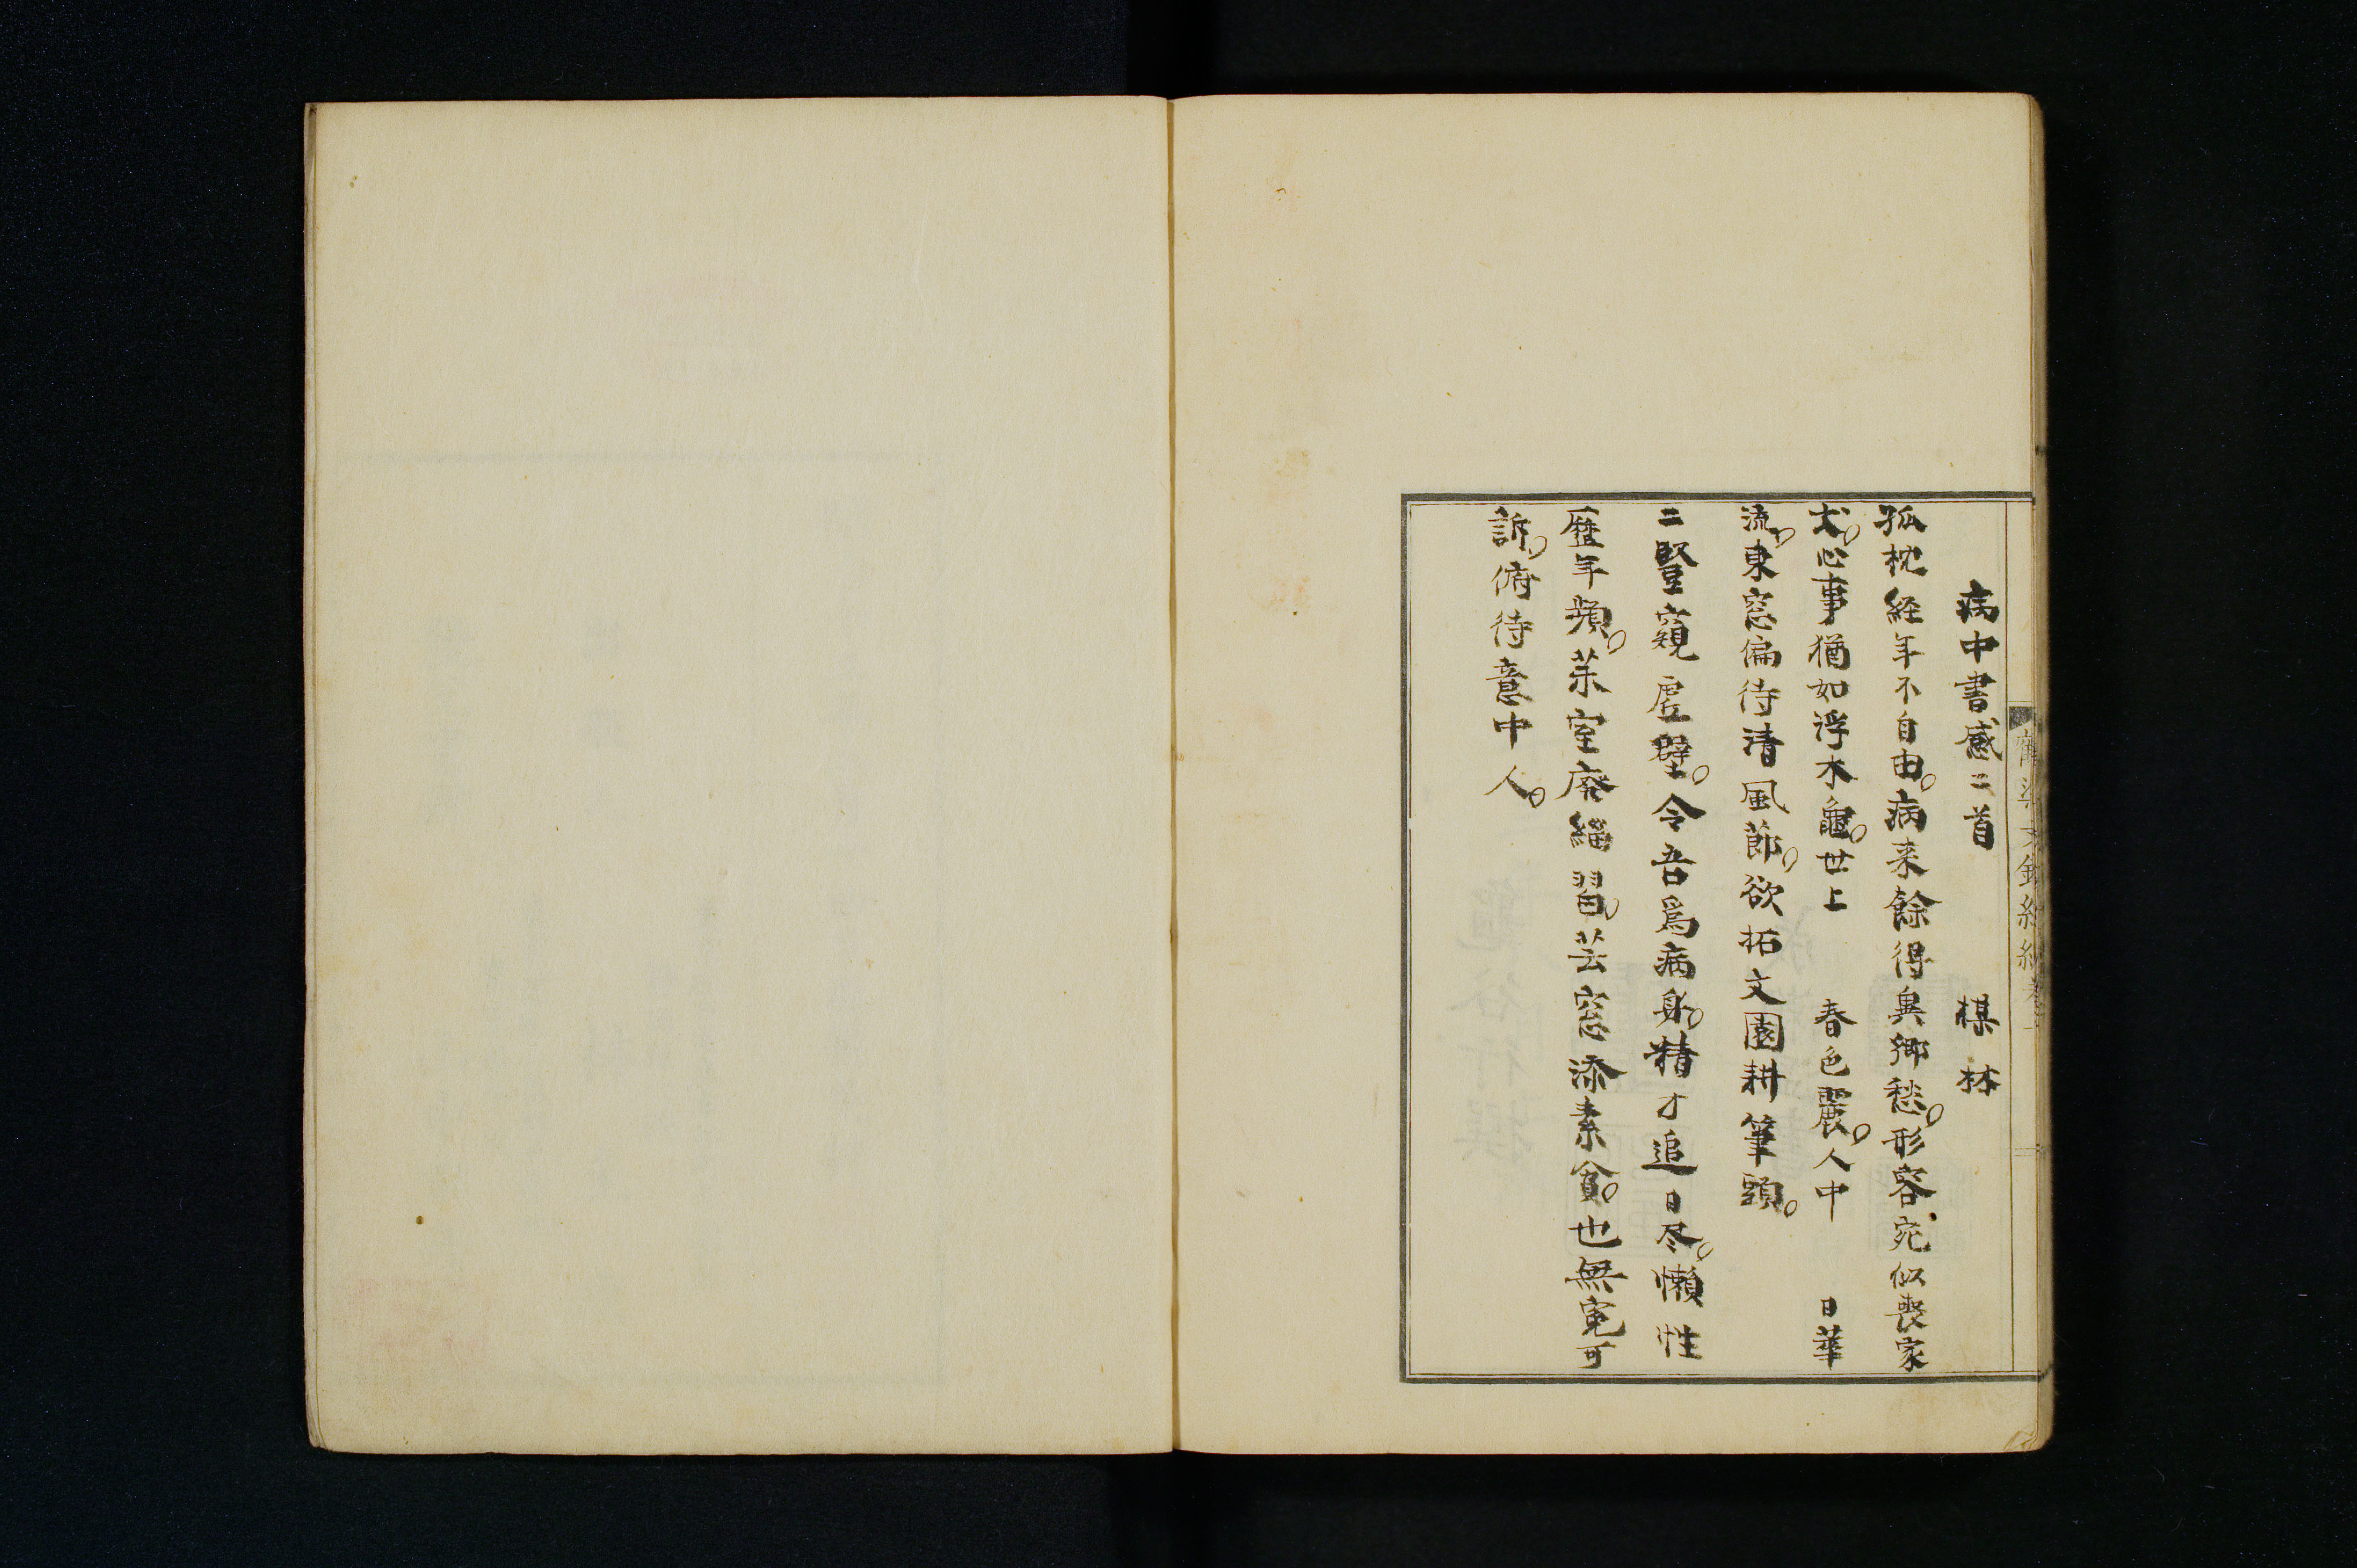 病中書感二首 棋林
孤枕経年不自由。病来餘得異郷愁。形容宛似喪家
犬。心事猶如浮木龜。世上 春色麗。人中 日華
流。東窓偏待清風節。欲拓文園耕筆頭。
二豎窺虚壁。令吾爲病身。精才追日尽。懶性
歴年頻。茱室廃緇習。芸窓添素貧。也無寃可
訴。俯待意中人。